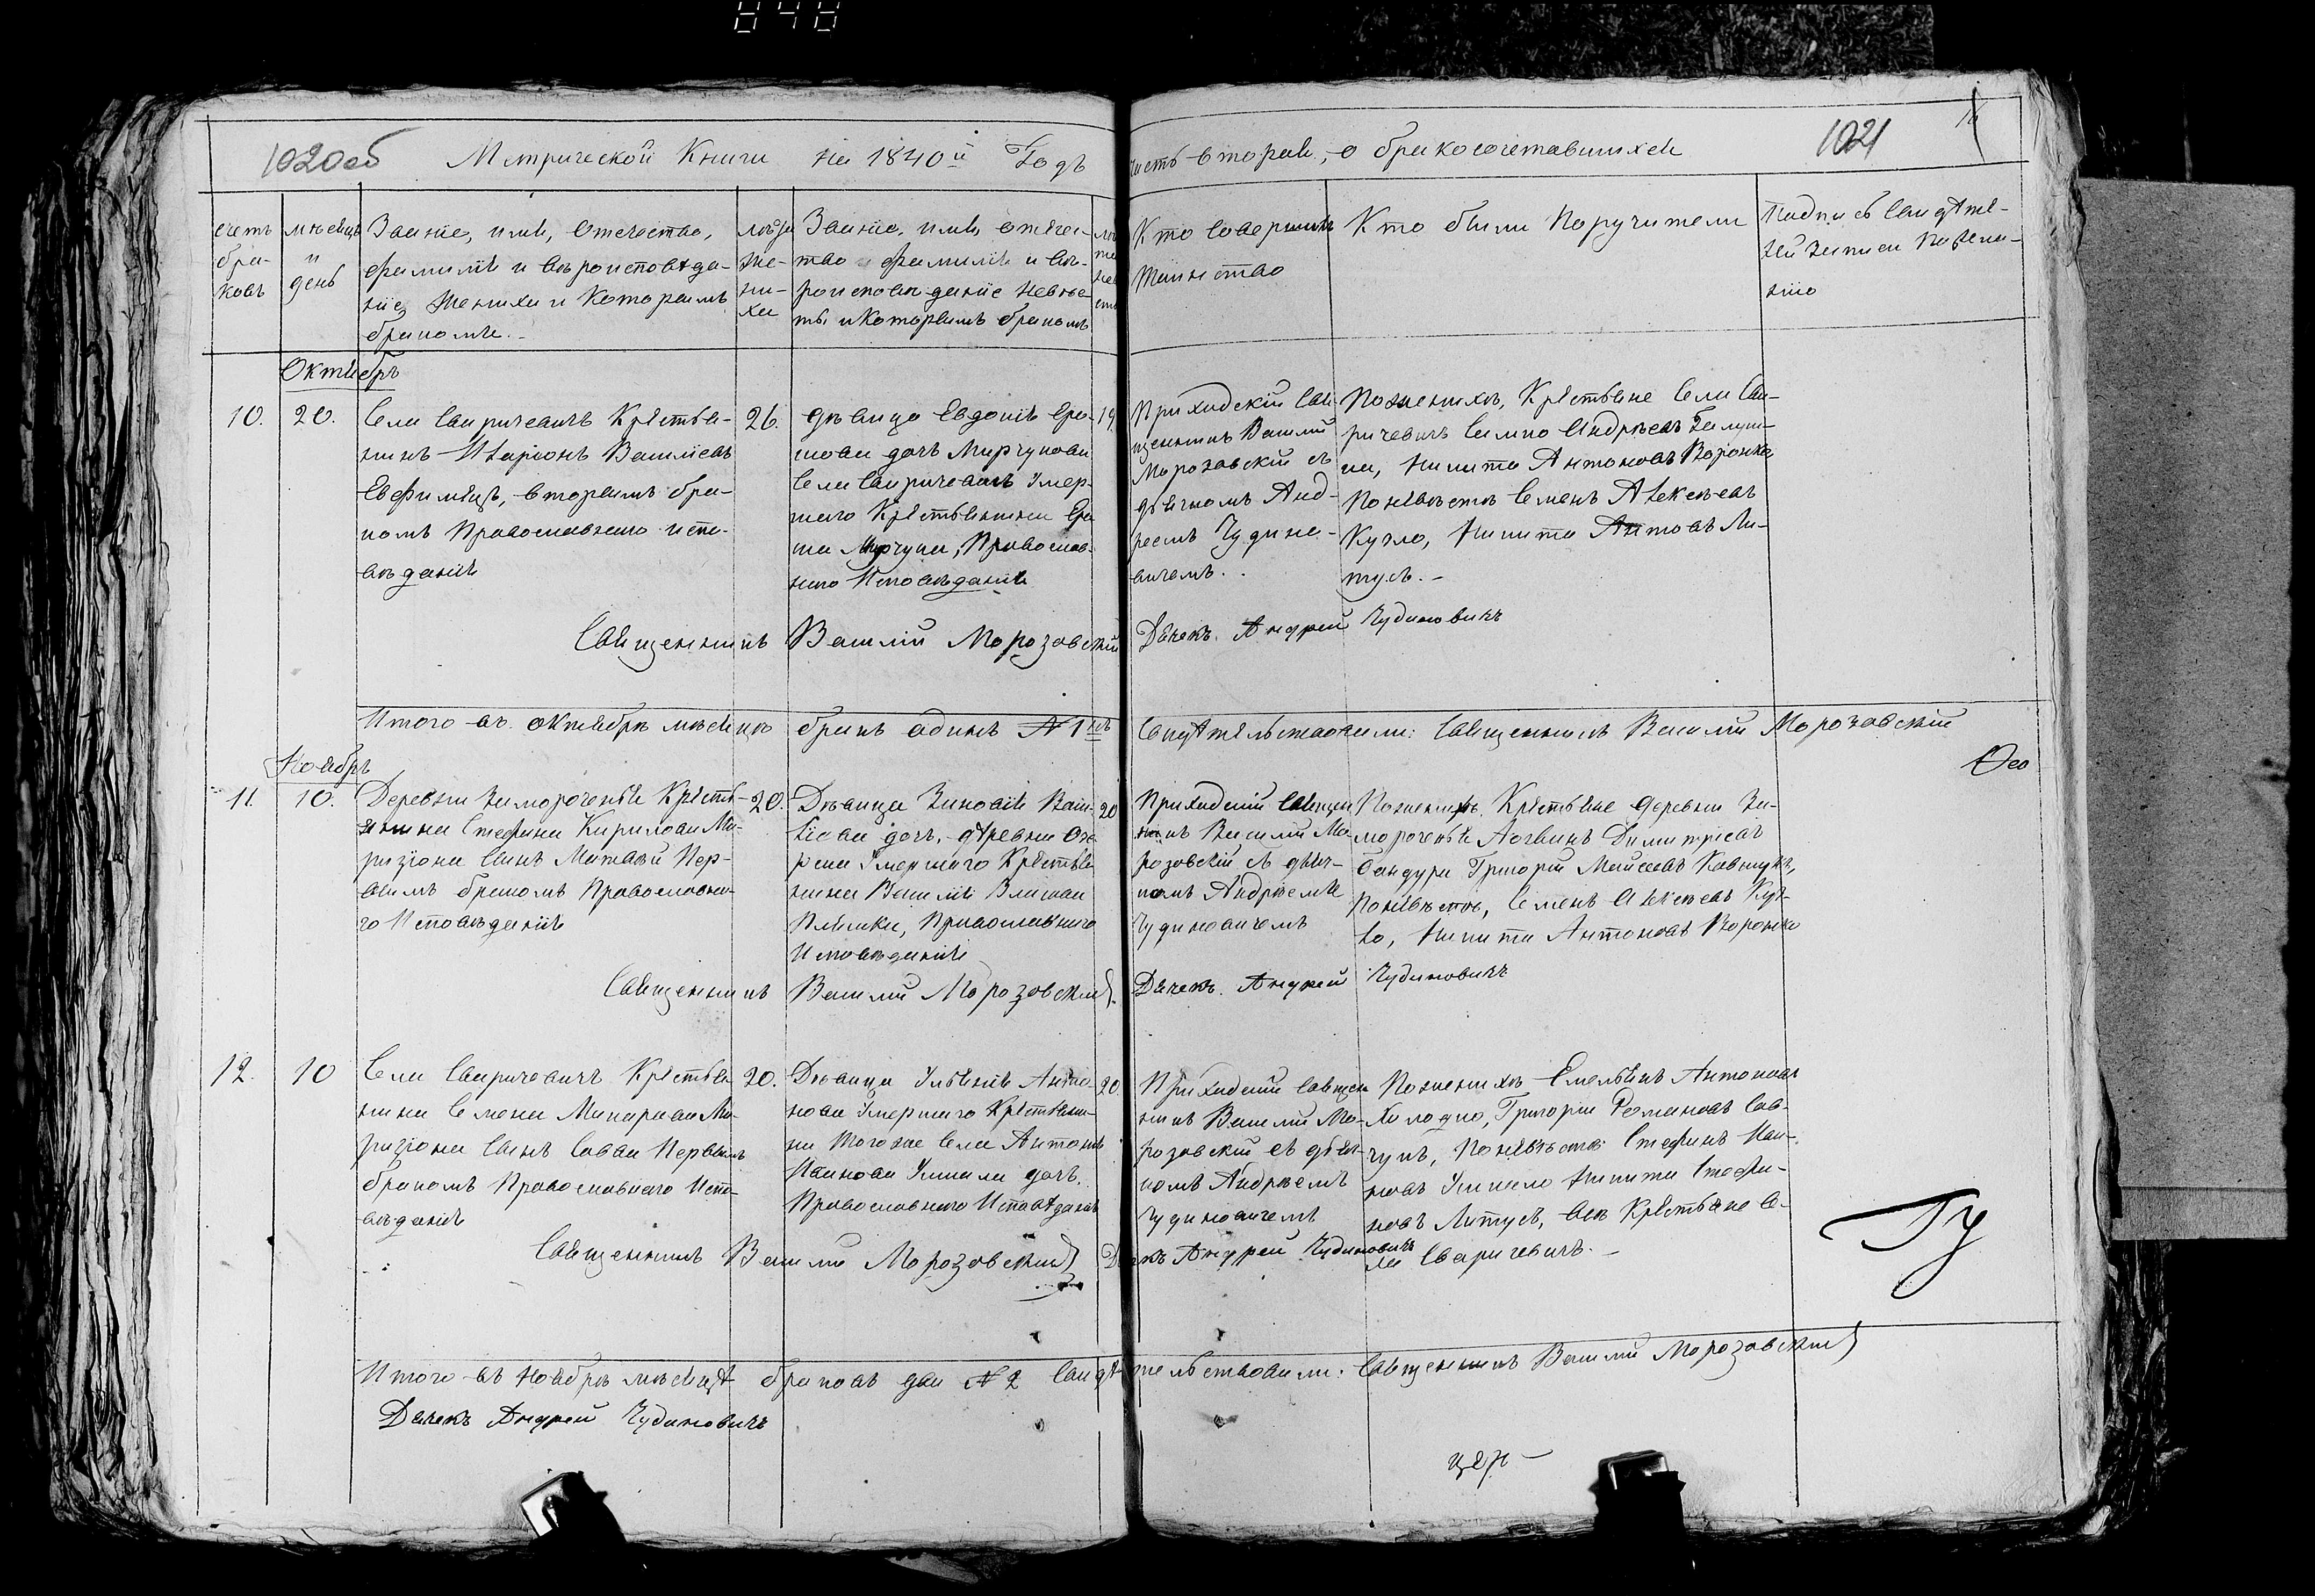 848
1020об Метрической Книги на 1840й Годъ
часть вторая, о бракосочетавшихся 1021
счетъ бра-ковъ
мѣсяцъ и день
Званіе, имя, Отечество,
фамилія и вѣроисповѣда-
ніе Жениха и Которымъ
бракомъ.
лѣта Же-ни-ха
Званіе, имя, отечес-
тво фамилія и вѣ-
роисповѣданіе невѣс-
ты и Которымъ бракомъ
Кто Совершилъ
Таинство
Кто были Поручители
Подпись Свидѣте-
лей Записи по жела-
нію
Октябрь
10. 20.
Села Сваричевичъ Крестья-
нинъ Иларіонъ Василіевъ
Евфимецъ, вторымъ бра-
комъ Православнаго испо-
вѣданія
26.
дѣвица Евдокія Ера-
шова дочь Марчукова
Села Сваричевичъ Умер-
шаго Крестьянина Ера-
ша Марчука, Православ-
наго Исповѣданія
19
Приходскій Свя-
щенникъ Василій
Морозовскій съ
дьячкомъ Анд-
реемъ Чудино-
вичемъ.
По женихѣ, Крестьяне Села Сва-
ричевичъ Андрѣевъ
Никита Антоновъ Воронко
По невѣстѣ Семенъ Алексѣевъ
Кузло, Никита Антовъ Ли-
тусъ. -
Священникъ Василій Морозовскій
Дьячекъ Андрей Чудиновичъ
Итого въ октябрѣ мѣсяцѣ бракъ одинъ № 1нъ Свидѣтельствовали: Священникъ Василій Морозовскій
Ѳео
Ноябрь
11. 10.
Деревни Заморочення Кресть-
янина Стефана Кирилова Ма-
ризіона Сынъ Матвѣй Пер-
вымъ бракомъ Православна-
го Исповѣданія
20.
Дѣвица Зиновія Васи-
ліова дочь, деревни
Умершаго Крестья-
нина Василія Власова
Православнаго
Исповѣданія
20
Приходскій Священ-
никъ Василій Мо-
розовскій съ дьяч-
комъ Андрѣемъ
Чудиновичемъ
По женихѣ Крестьяне деревни За-
мороченья Логвинъ Димитріевъ
Бандура Григорій Мойсеевъ Ковшукъ,
По невѣстѣ, Семенъ Алексѣевъ Куз-
ло, Никита Антоновъ Воронко
Священникъ Василій Морозовскій
Дьячекъ Андрей Чудиновичъ
12. 10
Села Сваричевичъ Крестья-
нина Семена Макарова Ма-
ризіона Сынъ Савва Первымъ
бракомъ Православнаго Испо-
вѣданія
20.
Дѣвица Ульянія Анто-
нова Умершаго Крестьяни-
на того же Села Антона
Иванова дочь.
Православнаго Исповѣданія
20.
Приходскій Священ-
никъ Василій Мо-
розовскій съ дьяч-
комъ Андрѣемъ
Чудиновичемъ
По женихѣ Емельянъ Антоновъ
Холодко, Григорій Романовъ Сав-
чукъ, По невѣстѣ Стефанъ Ива-
новъ Никита Стефа-
новъ Литусъ, всѣ Крестьяне Се-
ла Сваричевичъ. -
Священникъ Василій Морозовскій
Дьячекъ Андрей Чудиновичъ
Гу
Итого въ Ноябрѣ мѣсяцѣ браковъ два № 2 Свидѣтельствовали: Священникъ Василій Морозовскій
Дьячекъ Андрей Чудиновичъ
цер-